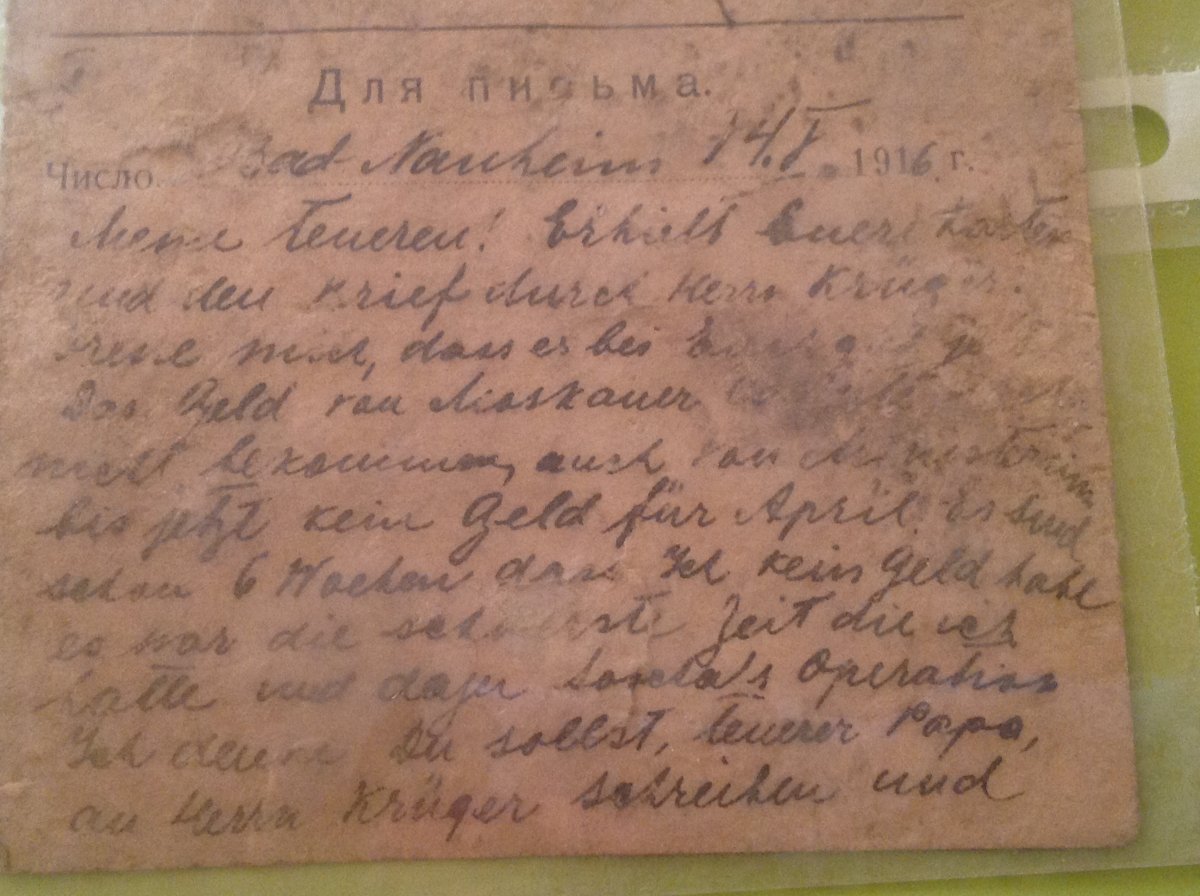 Для письма.
Число Bad Nauheim 14.V. 1916 г.
Meine Teueren! Erhielt Euere Karten
und den Brief durch Herrn Krüger.
Freue mich, dass er bei
Das Geld von Moskauer
nicht bekommen, auch von Ministerium
bis jetzt kein Geld für April. Es sind
schon 6 Wochen dass Ich kein Geld habe
es war die schwerste Zeit die ich
hatte und dazu Operation
Ich denke Du sollst, teuerer Papa,
an Herrn Krüger schreiben und